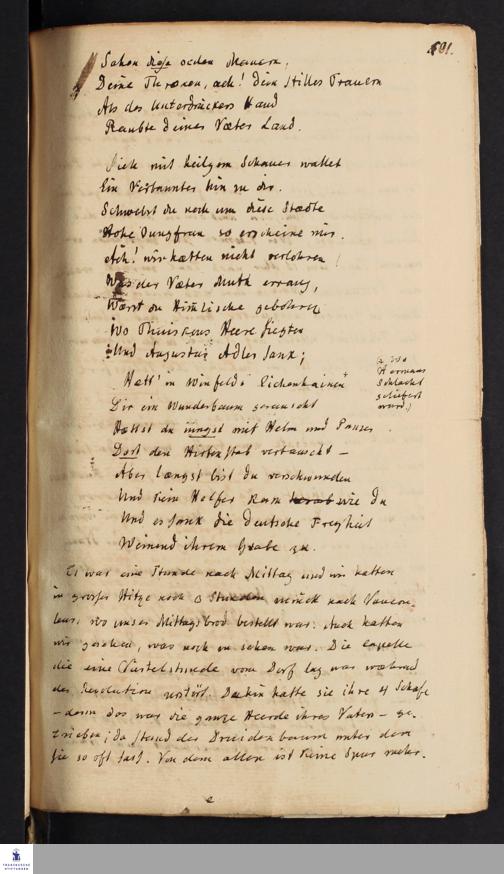 591.
Sahen diese oeden Mauern,
Deine Thrænen, ach! dein stilles Trauern
Als des Unterdrückers Hand
Raubte deines Væter Land.
Sieh mit heilgem Schauer wallet
Ein Verbannter hin zu dir.
Schwebst du noch um diese Stædte
Hohe Jungfrau so erscheine mir.
Ach! wir hætten nicht verlohren
Was der Væter Muth errang,
Wærst du Himlische gebohren
Wo Thuiskons Heere siegten
Und Augustus Adler sank;
Hætt' in Winfelds Eichenhainen
(: Wo
Hermanns
Schlacht
geliefert
ward:)
Dir ein Wunderbaum gerauscht
Hættst du iüngst mit Helm und Panzer
Dort den Hirtenstab vertauscht –
Aber længst bist du verschwunden
Und kein Helfer kam wie du
Und es sank die deutsche Freyheit
Weinend ihrem Grabe zu.
Es war eine Stunde nach Mittag und wir hatten
in grosser Hitze noch 3 Stunden zurück nach Vaucou-
leurs, wo unser Mittagsbrod bestellt war. Auch hatten
wir gesehen, was noch zu sehen war. Die Capelle
die eine Viertelstunde vom Dorf lag war wæhrend
der Revolution zerstört. Dahin hatte sie ihre 4 Schafe
– denn das war die ganze Heerde ihres Vaters – ge-
trieben; da stand der Druidenbaum unter dem
sie so oft sass. Von dem allen ist keine Spur mehr.